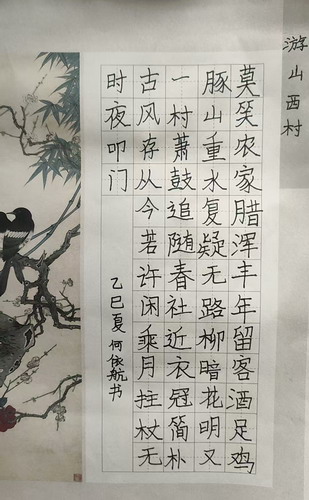 游山西村
莫笑农家腊浑丰年留客酒足鸡
豚山重水复疑无路柳暗花明又
一村萧鼓追随春社近衣冠简朴
古风存从今若许闲乘月拄杖无
时夜叩门
乙巳夏何依航书